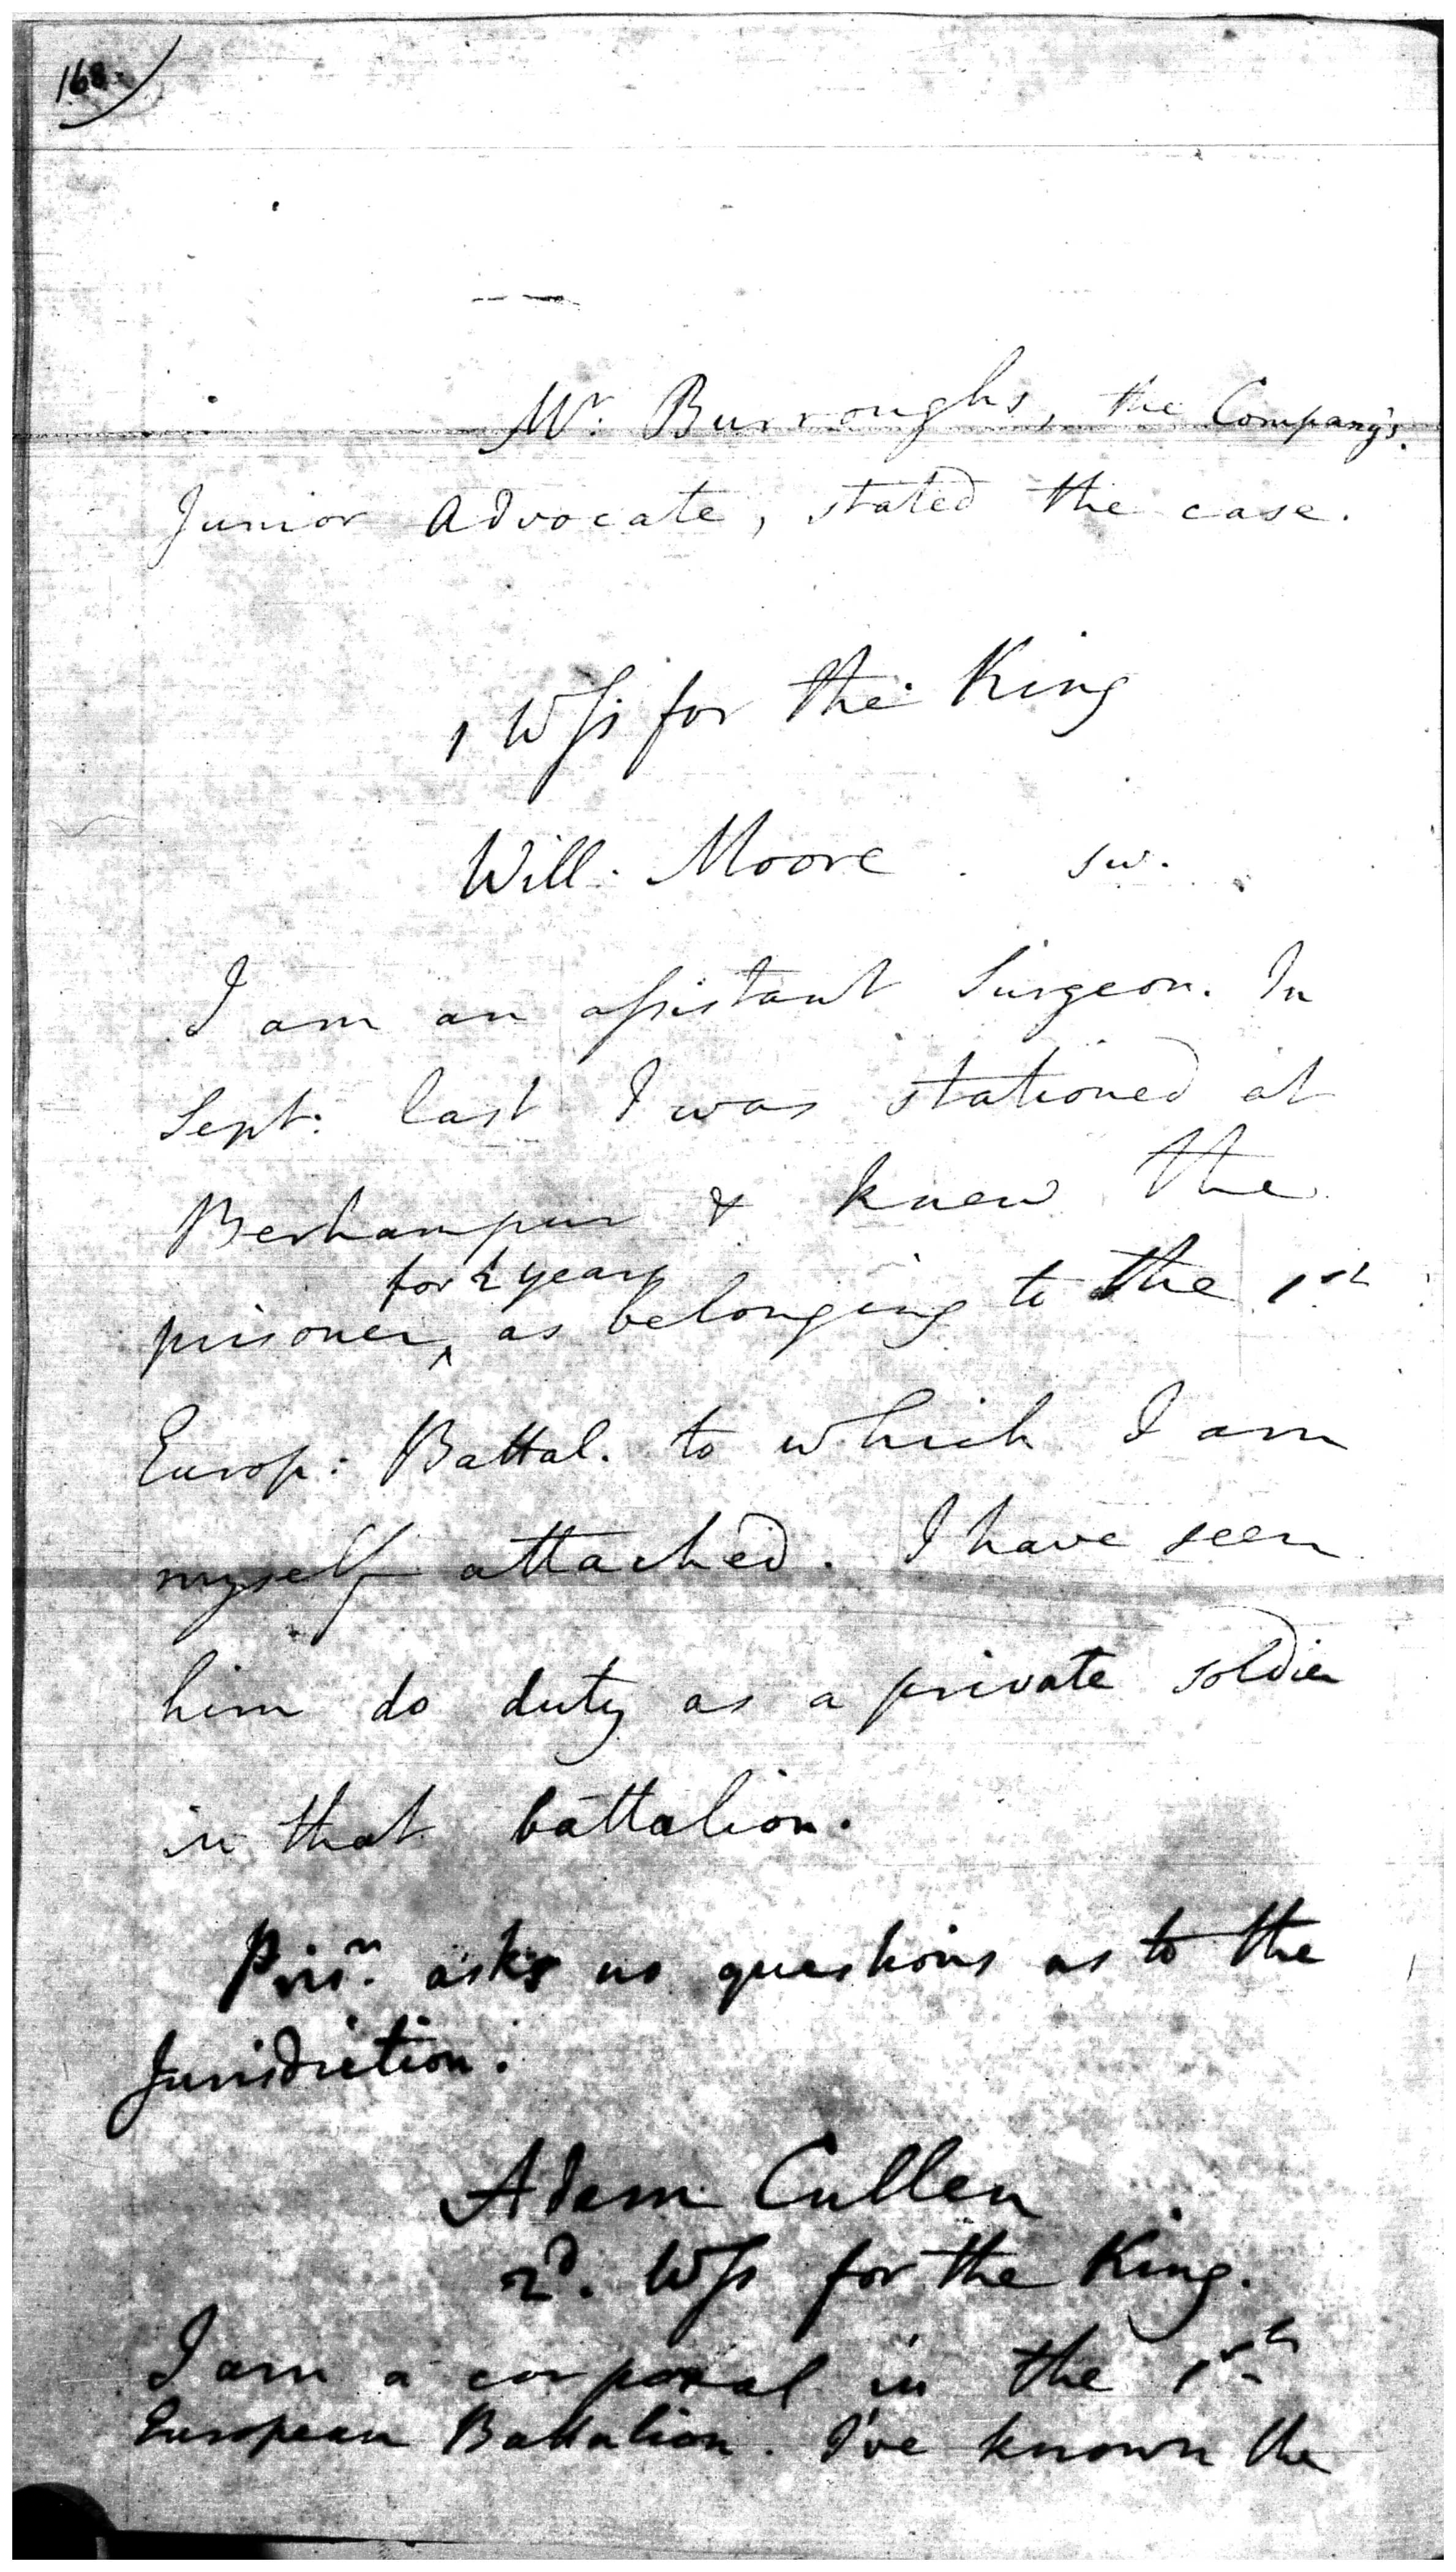 168.
Mr. Burroughs, the Company's
Junior Advocate, stated the case.
1 Wss for the King
Will. Moore. sw.
I am an assistant Surgeon. In
Sept: last I was stationed at
Berhampur & knew the
for 2 years
prisoner ^ as belonging to the 1st
Europ: Battal. to which I am
myself attached. I have seen
him do duty as a private soldier
in that battalion.
Prisr. asks no questions as to the
Jurisdiction.
Adam Cullen
2d. Wss for the King.
I am a corporal in the 1st
European Battalion. I've known the